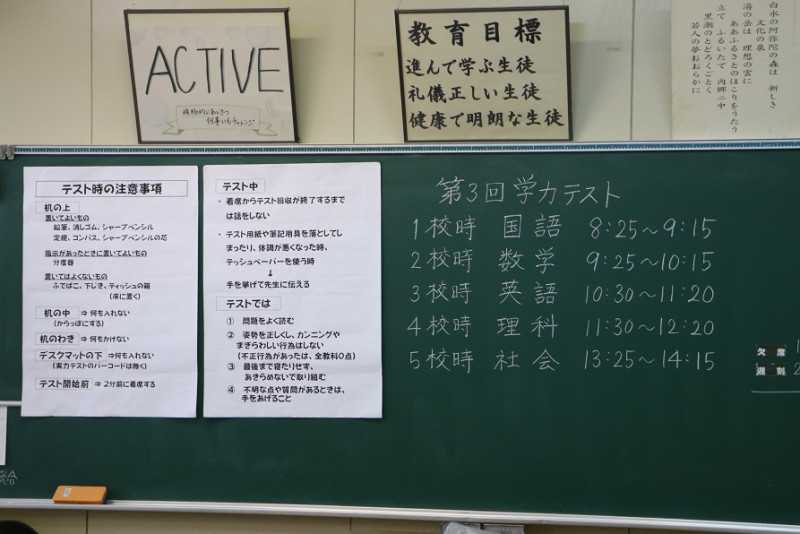 ACTIVE
積極的にあいさつ
何事にもチャレンジ
教育目標
進んで学ぶ生徒
礼儀正しい生徒
健康で明朗な生徒
白水の阿弥陀の森は 新しき
文化の泉
湯の岳は 理想の雲に
ああふるさとのほこりをうたう
立て ふるいたて 内郷二中
黒潮のとどろくごとく
若人の夢おおらかに
テスト時の注意事項
机の上
置いてよいもの
鉛筆、消しゴム、シャープペンシル
定規、コンパス、シャープペンシルの芯
指示があったときに置いてよいもの
分度器
置いてはよくないもの
ふでばこ、下じき、ティッシュの箱
(床に置く)
机の中 ⇒ 何も入れない
(からっぽにする)
机のわき ⇒ 何もかけない
デスクマットの下 ⇒何も入れない
(実力テストのバーコードは除く)
テスト開始前 ⇒ 2分前に着席する
テスト中
・ 着席からテスト回収が終了するまで
は話をしない
・ テスト用紙や筆記用具を落としてし
まったり、体調が悪くなった時、
テッシュペーパーを使う時
↓
手を挙げて先生に伝える
テストでは
① 問題をよく読む
② 姿勢を正しくし、カンニングや
まぎらわしい行為はしない
(不正行為があったは、全教科0点)
③ 最後まで寝たりせず、
あきらめないで取り組む
④ 不明な点や質問があるときは、
手をあげること
第3回学力テスト
1校時 国語 8:25~9:15
2校時 数学 9:25~10:15
3校時 英語 10:30~11:20
4校時 理科 11:30~12:20
5校時 社会 13:25~14:15
欠席 1
遅刻 2